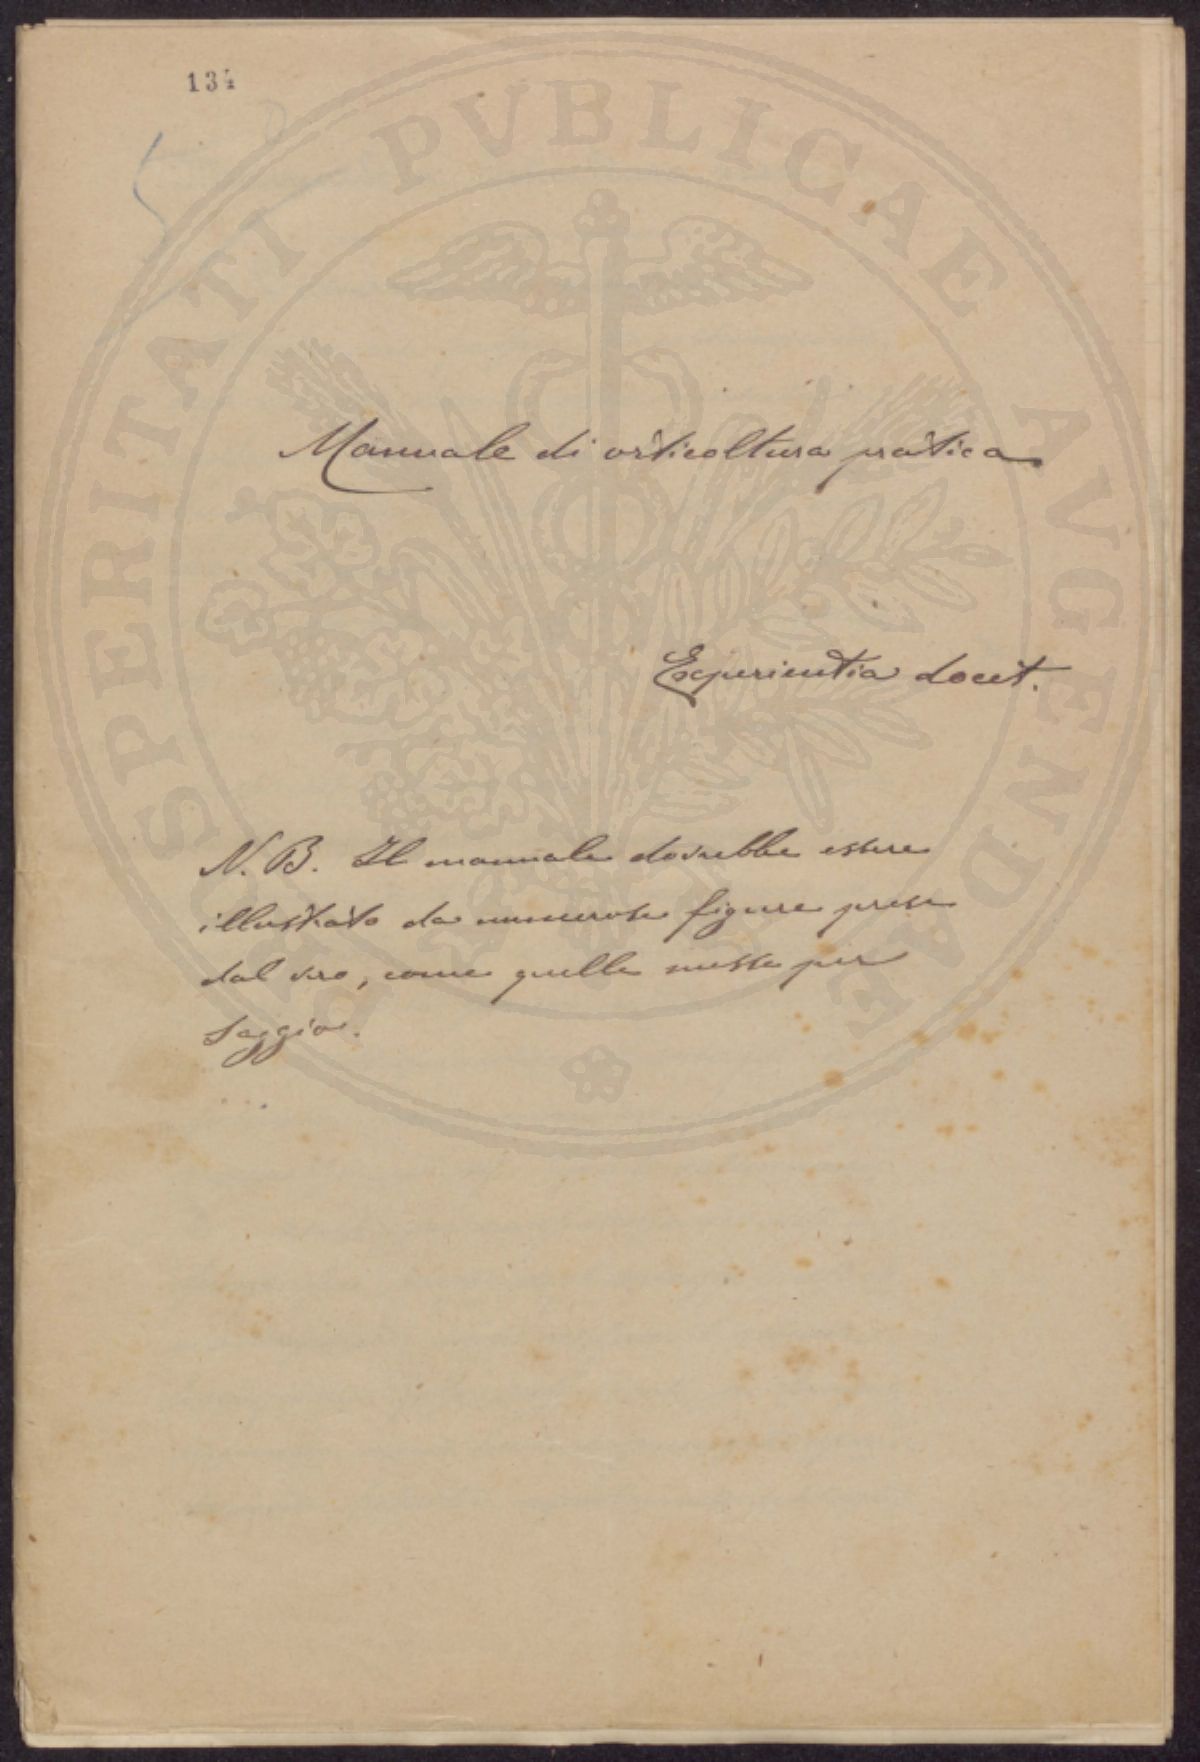 134
PROSPERITATI PVBLICAE AVGENDAE
Manuale di orticoltura pratica
Experientia docet.
N. B. Il manuale dovrebbe essere
illustrato da numerose figure prese
dal vero, come quelle messe per
saggio.